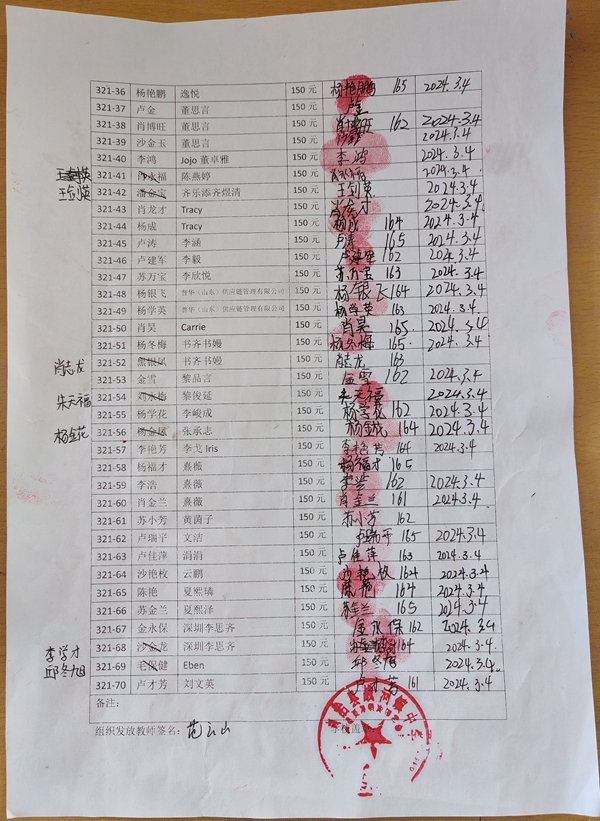 321-36 杨艳鹏 逸悦 150 元 杨艳鹏 165 2024.3.4
321-37 卢金 董思言 150 元 卢金
321-38 肖博旺 董思言 150 元 162 2024.3.4
321-39 沙金玉 董思言 150 元 2024.3.4
321-40 李鸿 Jojo 董卓雅 150 元 李鸿 2024.3.4
321-41 陈燕婷 150 元 2024.3.4
321-42 潘金宝 齐乐添齐煜清 150 元 2024.3.4
321-43 肖龙才 Tracy 150 元 肖龙才 2024.3.4
321-44 杨成 Tracy 150 元 杨成 164 2024.3.4
321-45 卢涛 李涵 150 元 卢涛 165 2024.3.4
321-46 卢建军 李毅 150 元 162 2024.3.4
321-47 苏万宝 李欣悦 150 元 苏万宝 163 2024.3.4
321-48 杨银飞 普华（山东）供应链管理有限公司 150 元 杨银飞 164 2024.3.4
321-49 杨学英 普华（山东）供应链管理有限公司 150 元 杨学英 163 2024.3.4
321-50 肖昊 Carrie 150 元 肖昊 165 2024.3.4
321-51 杨冬梅 书齐书嫚 150 元 杨冬梅 165 2024.3.4
肖志龙 321-52 书齐书嫚 150 元 肖志龙 163
321-53 金雪 黎品言 150 元 金雪 162 2024.3.4
朱天福 321-54 黎俊延 150 元 朱天福 2024.3.4
321-55 杨学花 李峻成 150 元 杨学花 162 2024.3.4
杨金花 321-56 张承志 150 元 164 2024.3.4
321-57 李艳芳 李戈 Iris 150 元 李艳芳 164 2024.3.4
321-58 杨福才 熹薇 150 元 杨福才 165
321-59 李浩 熹薇 150 元 李浩 162 2024.3.4
321-60 肖金兰 熹薇 150 元 肖金兰 161 2024.3.4
321-61 苏小芳 黄茵子 150 元 苏小芳 162
321-62 卢瑞平 文洁 150 元 卢瑞平 165 2024.3.4
321-63 卢佳萍 涓涓 150 元 卢佳萍 163 2024.3.4
321-64 沙艳枚 云鹏 150 元 沙艳枚 164 2024.3.4
321-65 陈艳 夏熙璘 150 元 陈艳 164 2024.3.4
321-66 苏金兰 夏熙泽 150 元 苏金兰 165 2024.3.4
321-67 金永保 深圳李思齐 150 元 金永保 162 2024.3.4
李学才 321-68 沙金龙 深圳李思齐 150 元 164 2024.3.4
邱冬旭 321-69 毛保健 Eben 150 元 邱冬旭 2024.3.4
321-70 卢才芳 刘文英 150 元 161 2024.3.4
备注:
组织发放教师签名: 范云山